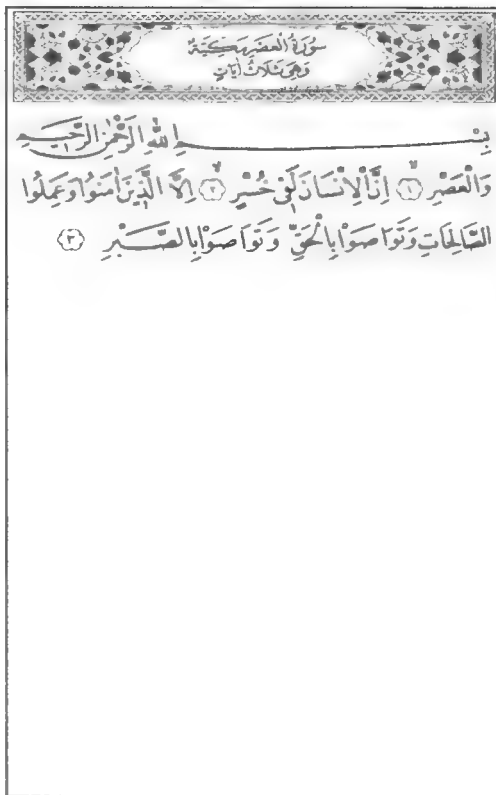 سُورَةُ الْعَصْرِ مَكِّيَّةٌ
وَهِيَ ثَلَاثُ اٰيَاتٍ
بِسْــــــــمِ اللّٰهِ الرَّحْمٰنِ الرَّح۪يمِ
وَالْعَصْرِۙ ﴿١﴾ اِنَّ الْاِنْسَانَ لَف۪ي خُسْرٍۙ ﴿٢﴾ اِلَّا الَّذ۪ينَ اٰمَنُوا وَعَمِلُوا
الصَّالِحَاتِ وَتَوَاصَوْا بِالْحَقِّ وَتَوَاصَوْا بِالصَّبْرِ ﴿٣﴾